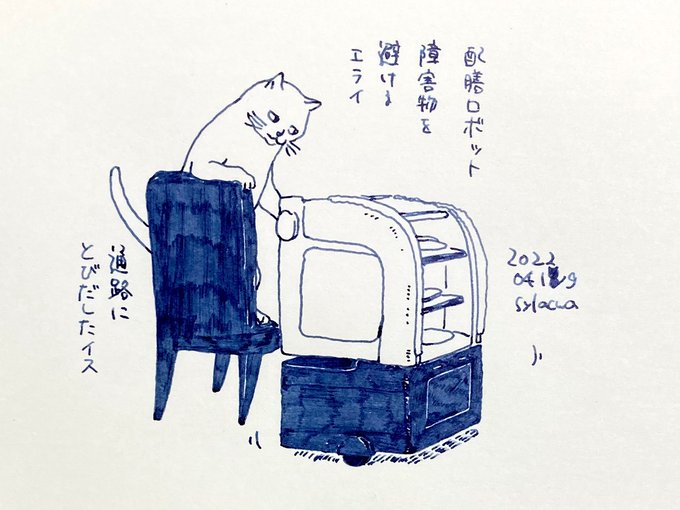 配膳ロボット
障害物を
避ける
エライ
通路に
とびだしたイス
2022
sylacua